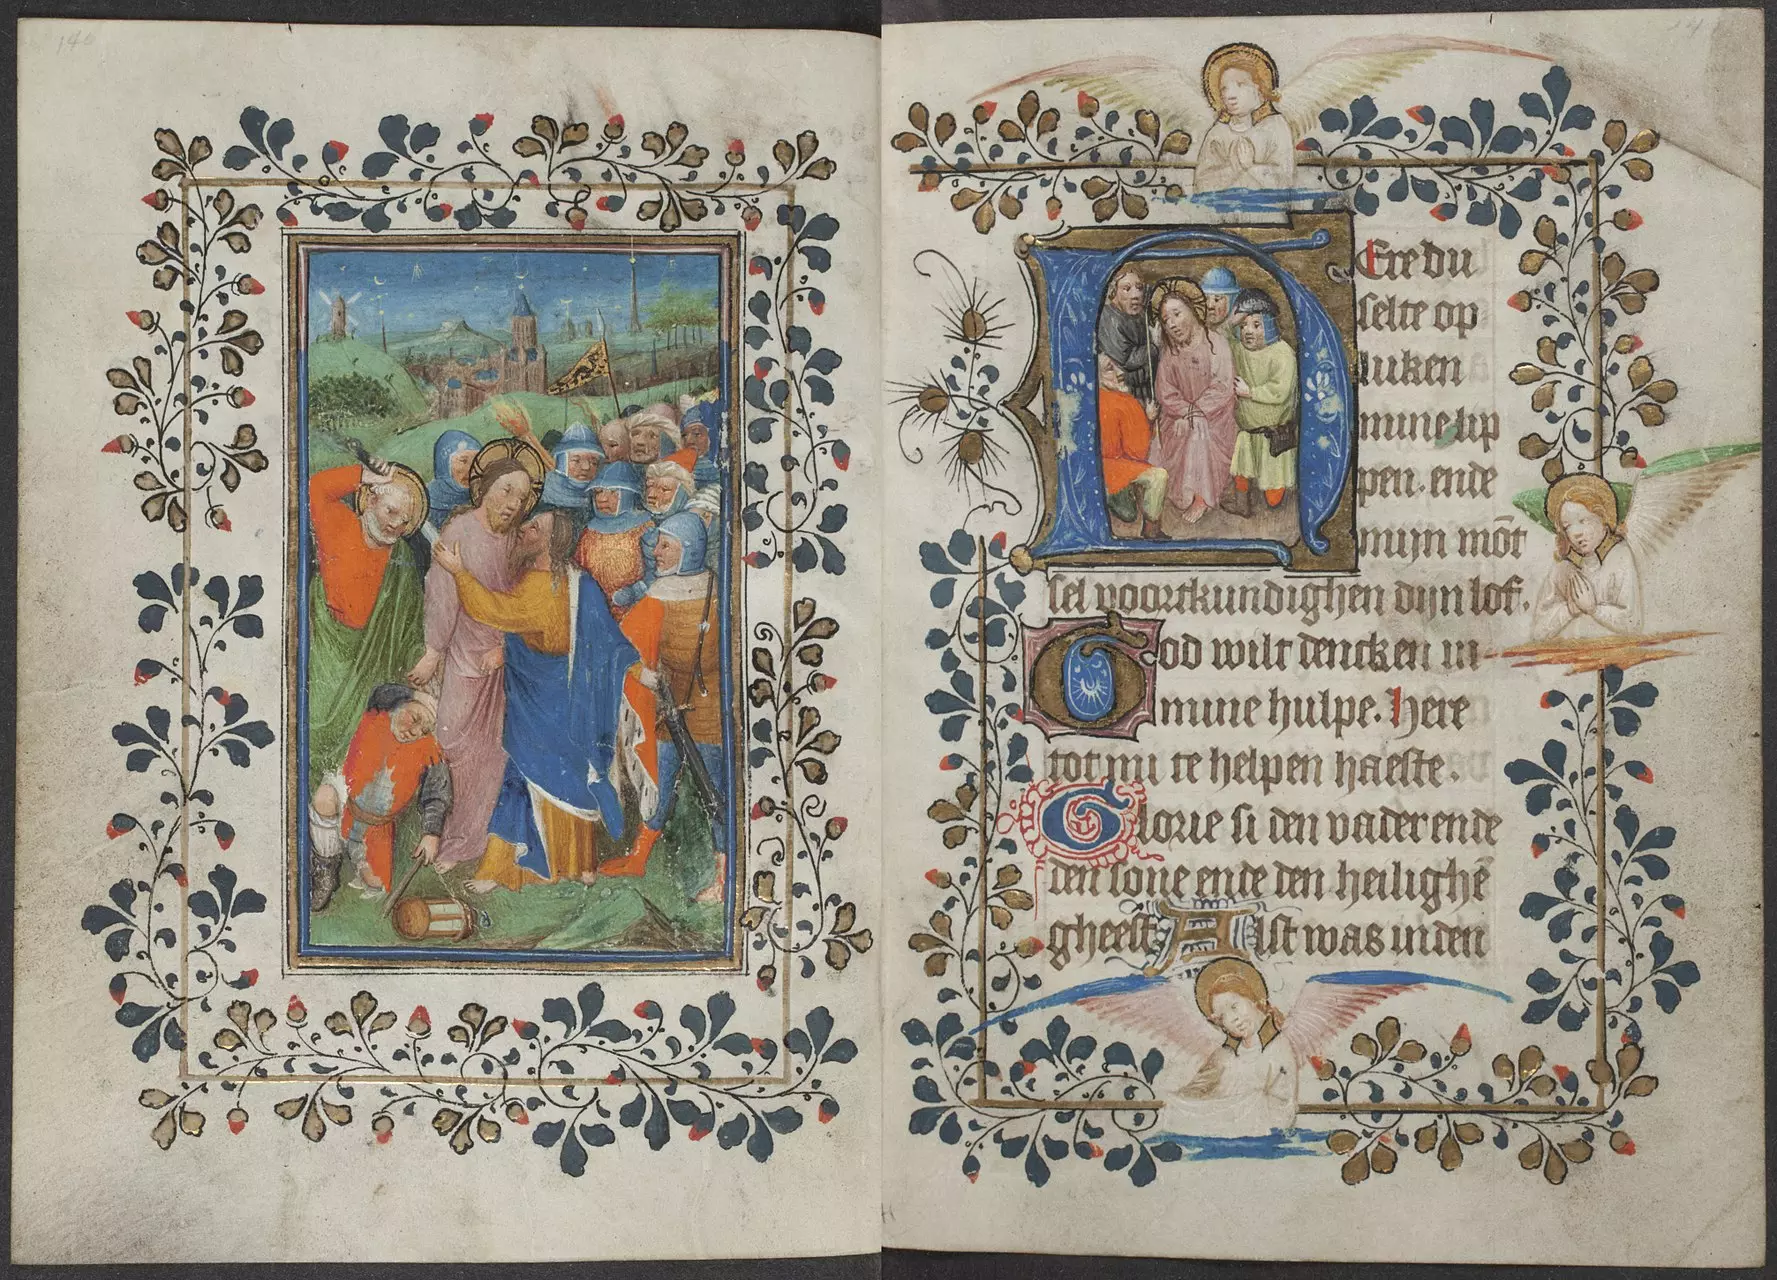 140
Here du
selte op
luken
mine lip
pen. ende
mijn mōt
sel voortkundighen dijn lof.
God wilt dencken in
mine hulpe. Here
tot mi te helpen haeste.
Glorie si den vader ende
den sone ende den heilighē
gheest Alst was in den